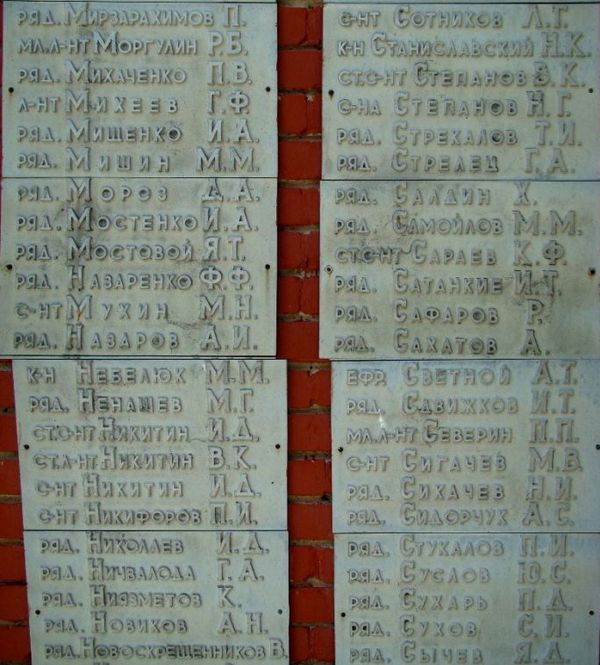 ряд. Мирзарахимов П.
мл.л-нт Моргулин Р.Б.
ряд. Михаченко П.В.
л-нт Михеев Г.Ф
ряд. Мищенко И.А.
ряд. Мишин М.М.
ряд. Мороз Д.А.
ряд. Мостенко И.А.
ряд. Мостовой Я.Т.
ряд. Назаренко Ф.Ф.
с-нт Мухин М.Н.
ряд. Назаров А.И.
к-н Небелюк М.М.
ряд. Ненашев М.Г.
ст.с-нт Никитин И.Д.
ст.л-нт Никитин В.К.
с-нт Никитин И.Д.
с-нт Никифоров П.И.
ряд. Николаев И.Д.
ряд. Ничвалода Г.А.
ряд. Ниязметов К.
ряд. Новиков А.Н.
ряд. Новоскрещенников В.
с-нт Сотников Л.Т.
к-н Станиславский Н.К.
ст.с-нт Степанов В.К.
с-на Степанов Н.Г.
ряд. Стрекалов Т.И.
ряд. Стрелец Г.А.
ряд. Салдин Х.
ряд. Самойлов М.М.
ст.с-нт Сараев К.Ф.
ряд. Сатанкие И.Т.
ряд. Сафаров Р.
ряд. Сахатов А.
ефр. Светной А.Т.
ряд. Сдвижков И.Т.
мл.л-нт Северин П.П.
с-нт Сигачев М.В.
ряд. Сихачев Н.И.
ряд. Сидорчук А.С.
ряд. Стукалов П.И.
ряд. Суслов Ю.С.
ряд. Сухарь П.Д.
ряд. Сухов С.И.
ряд. Сычев Я.Л.